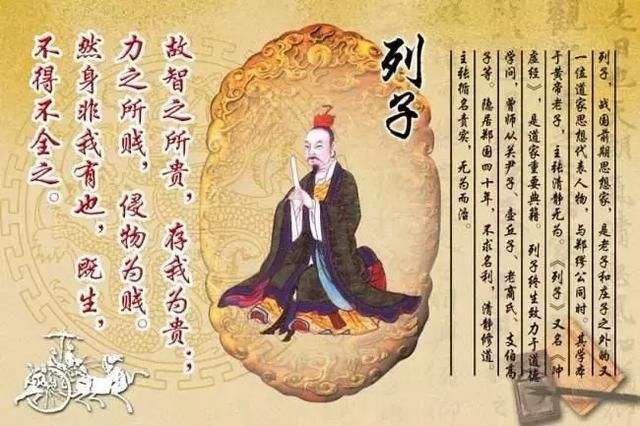 列子，战国前期思想家，是老子和庄子之外的又
一位道家思想代表人物，与郑缪公同时。其学本
于黄帝老子，主张清静无为。《列子》又名《冲
虚经》，是道家重要典籍。列子终生致力于道德
学问，曾师从关尹子、壶丘子、老商氏、支伯高
子等。隐居郑国四十年，不求名利，清静修道。
主张循名责实，无为而治。
列子
故智之所贵，存我为贵；
力之所贱，侵物为贱。
然身非我有也，既生，
不得不全之。